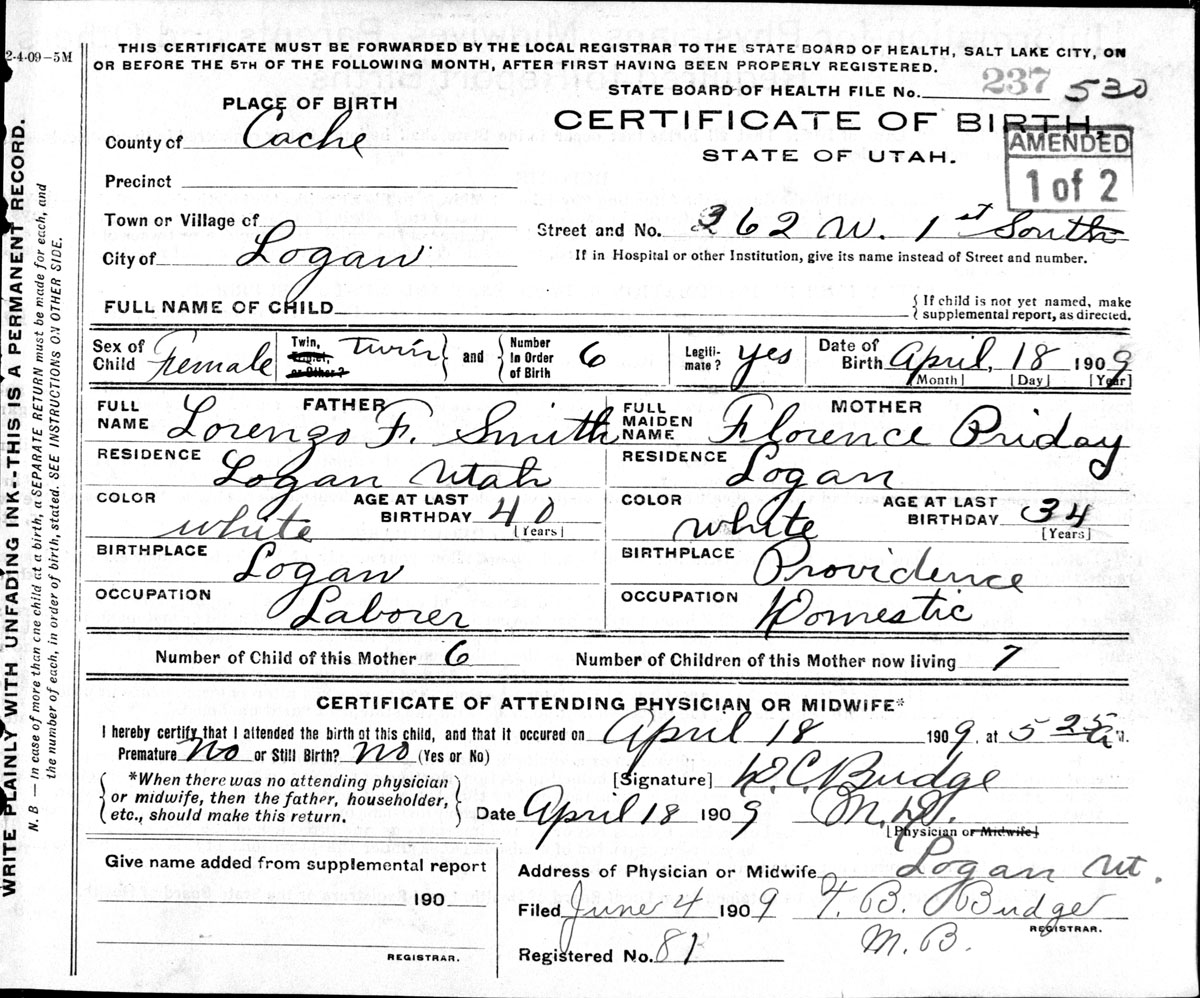 2-4-09-5M
THIS CERTIFICATE MUST BE FORWARDED BY THE LOCAL REGISTRAR TO THE STATE BOARD OF HEALTH, SALT LAKE CITY, ON
OR BEFORE THE 5TH OF THE FOLLOWING MONTH, AFTER FIRST HAVING BEEN PROPERLY REGISTERED.
STATE BOARD OF HEALTH FILE No. 237 530
PLACE OF BIRTH
CERTIFICATE OF BIRTH,
County of Cache
STATE OF UTAH.
AMENDED
1 of 2
Precinct
Town or Village of
Street and No. 362 W. 1st South
City of Logan
If in Hospital or other Institution, give its name instead of Street and number.
FULL NAME OF CHILD
{ If child is not yet named, make
supplemental report, as directed.
Sex of Child Female
Twin, Triplet, or Other? twin } and { Number In Order of Birth 6
Legiti-mate? yes
Date of Birth April, 18 1909
[Month] [Day] [Year]
FATHER
FULL NAME Lorenzo F. Smith
MOTHER
FULL MAIDEN NAME Florence Priday
RESIDENCE Logan Utah
RESIDENCE Logan
COLOR white AGE AT LAST BIRTHDAY 40 [Years]
COLOR white AGE AT LAST BIRTHDAY 34 [Years]
BIRTHPLACE Logan
BIRTHPLACE Providence
OCCUPATION Laborer
OCCUPATION Domestic
Number of Child of this Mother 6 Number of Children of this Mother now living 7
CERTIFICATE OF ATTENDING PHYSICIAN OR MIDWIFE*
I hereby certify that I attended the birth of this child, and that it occured on April 18 1909, at 5 25 a M.
Premature No or Still Birth? No (Yes or No)
*When there was no attending physician
or midwife, then the father, householder,
etc., should make this return.
[Signature] D.C. Budge
Date April 18 1909 M.D.
[Physician or Midwife]
Give name added from supplemental report
190
REGISTRAR.
Address of Physician or Midwife Logan Ut.
Filed June 4 1909 F. B. Budge
REGISTRAR.
Registered No. 81 M. B.
WRITE PLAINLY WITH UNFADING INK--THIS IS A PERMANENT RECORD.
N. B — In case of more than one child at birth, a SEPARATE RETURN must be made for each, and
the number of each, in order of birth, stated. SEE INSTRUCTIONS ON OTHER SIDE.